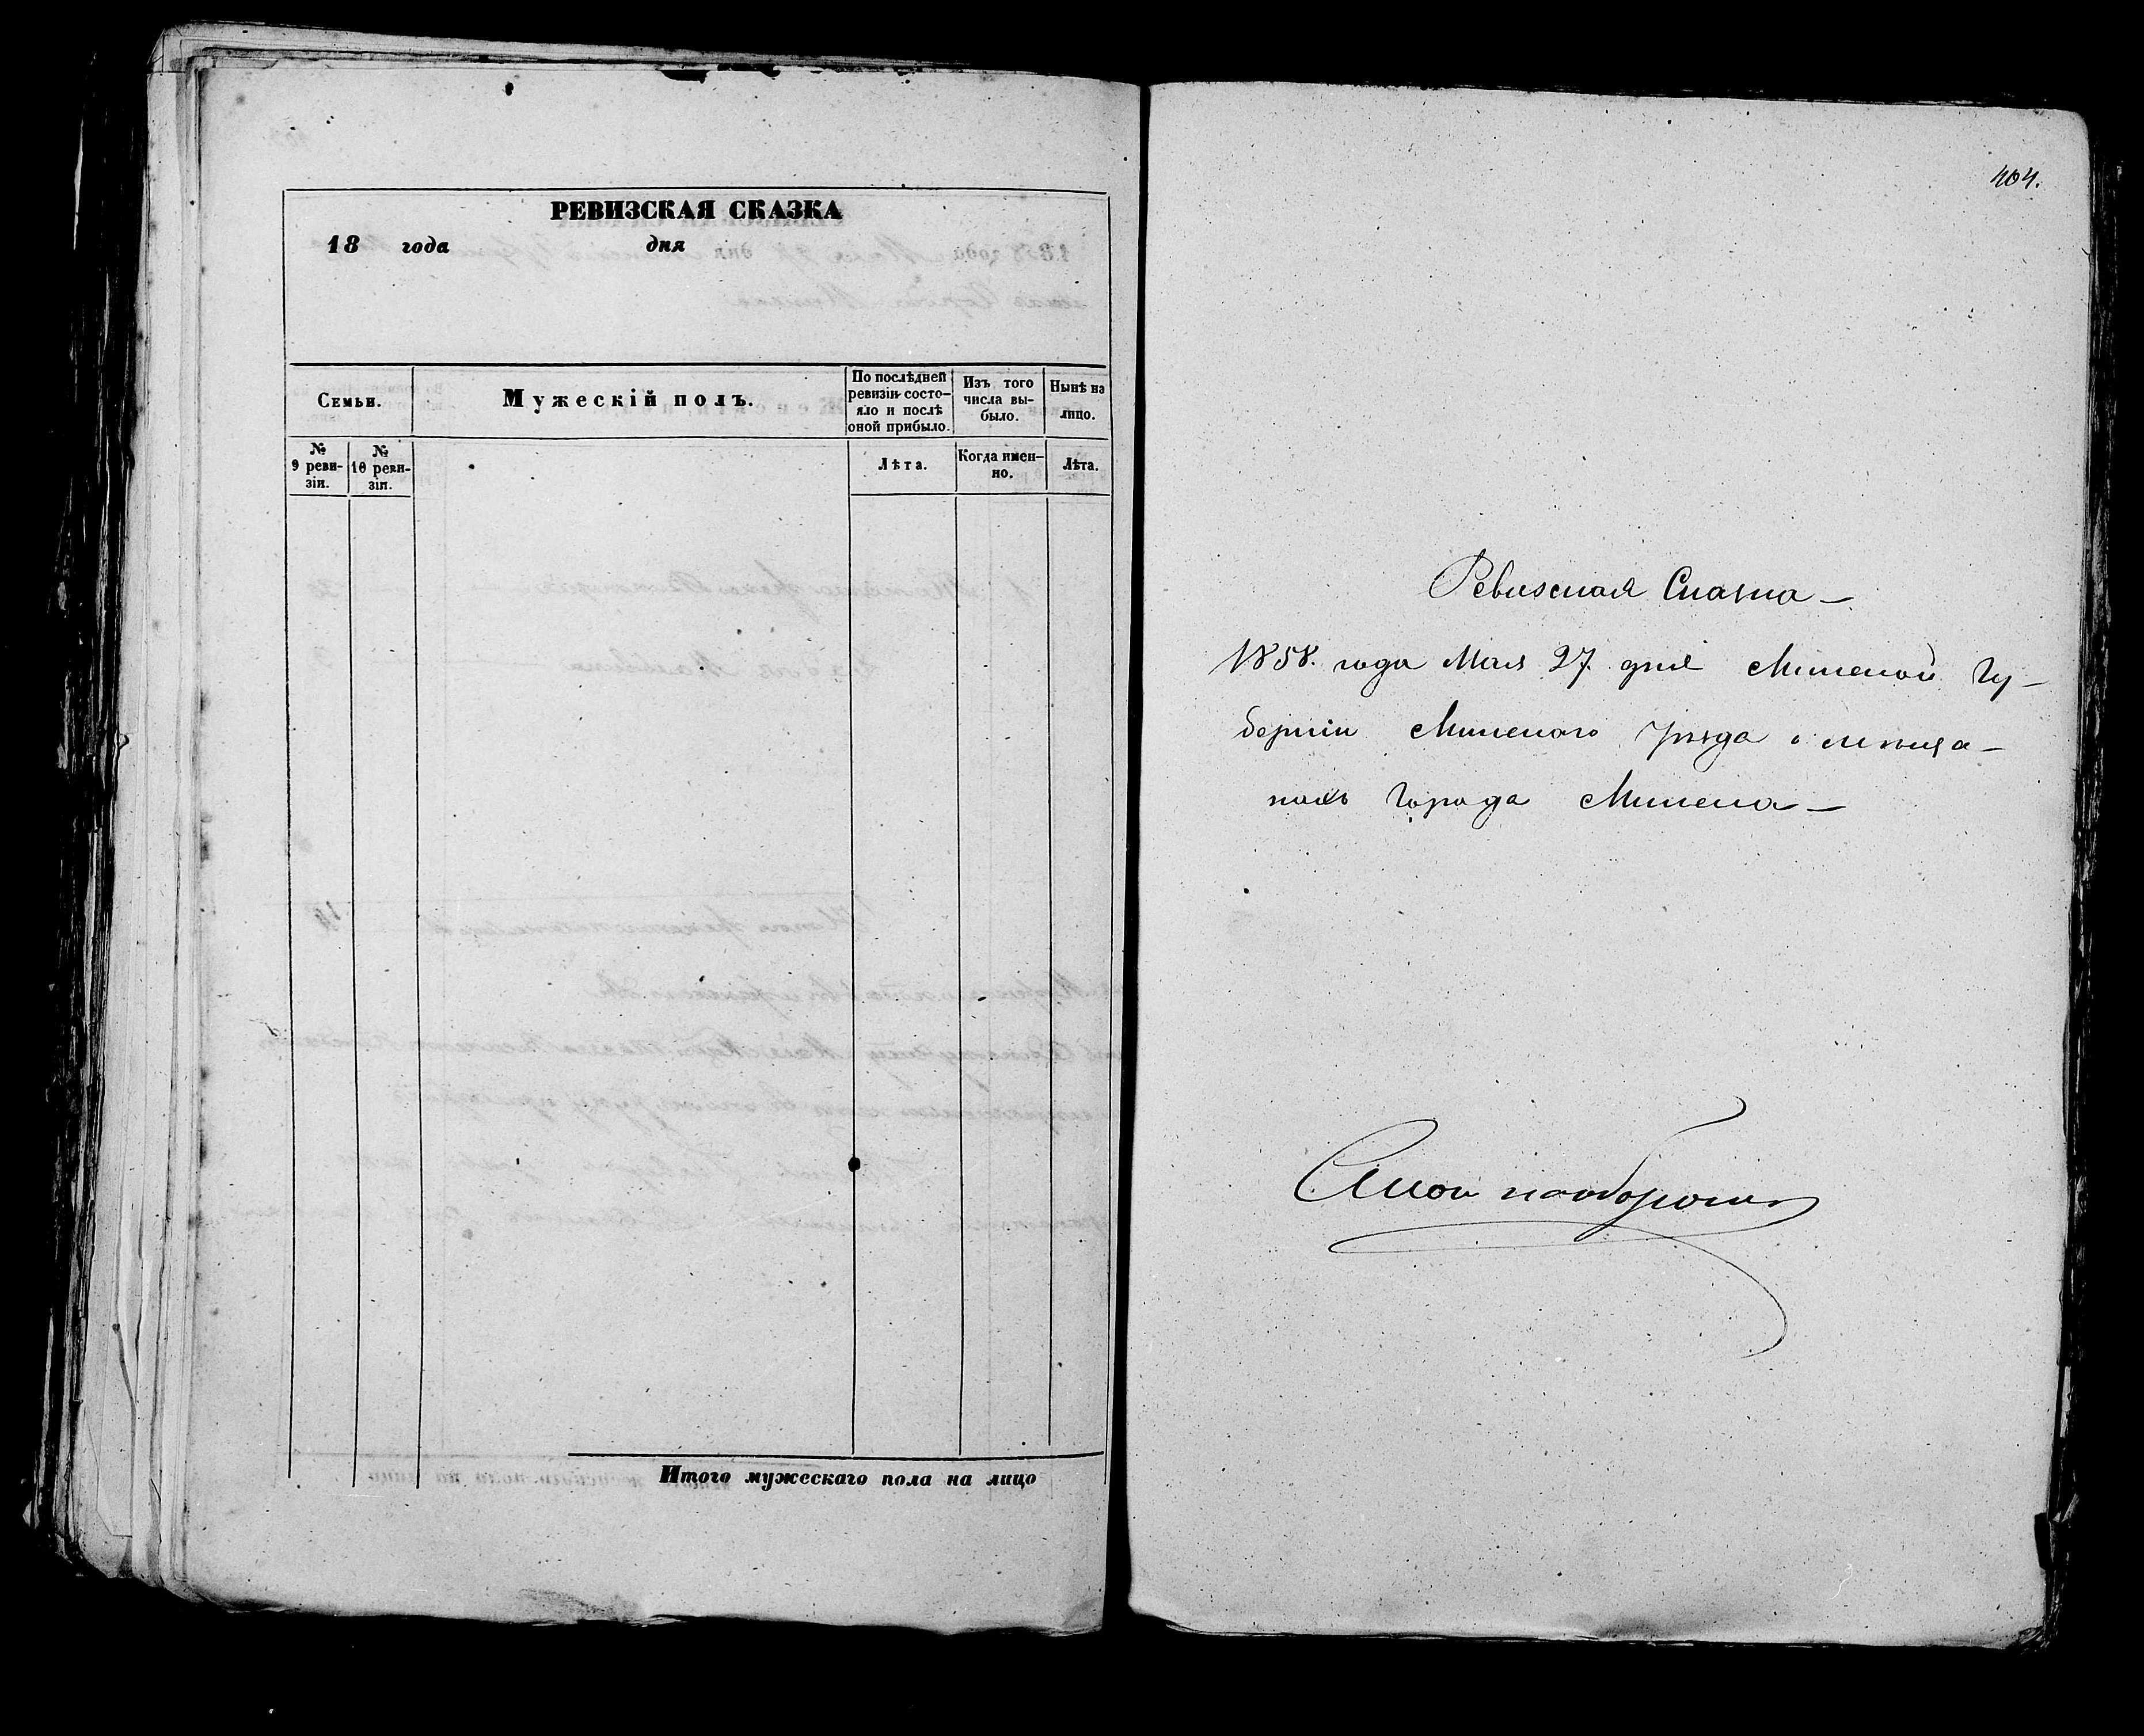 РЕВИЗСКАЯ СКАЗКА
18 года дня
Семьи.
Мужескій полъ.
По послѣдней
ревизіи состо-
яло и послѣ
оной прибыло.
Изъ того
числа вы-
было.
Нынѣ на
лицо.
№
9 реви-
зіи.
№
10 реви-
зіи.
Лѣта.
Когда имен-
но.
Лѣта.
Итого мужескаго пола на лицо
404.
Ревизская Сказка —
1858. года Мая 27. дня Минской Гу-
берніи Минского Уѣзда о мѣща-
нахъ Города Минска —